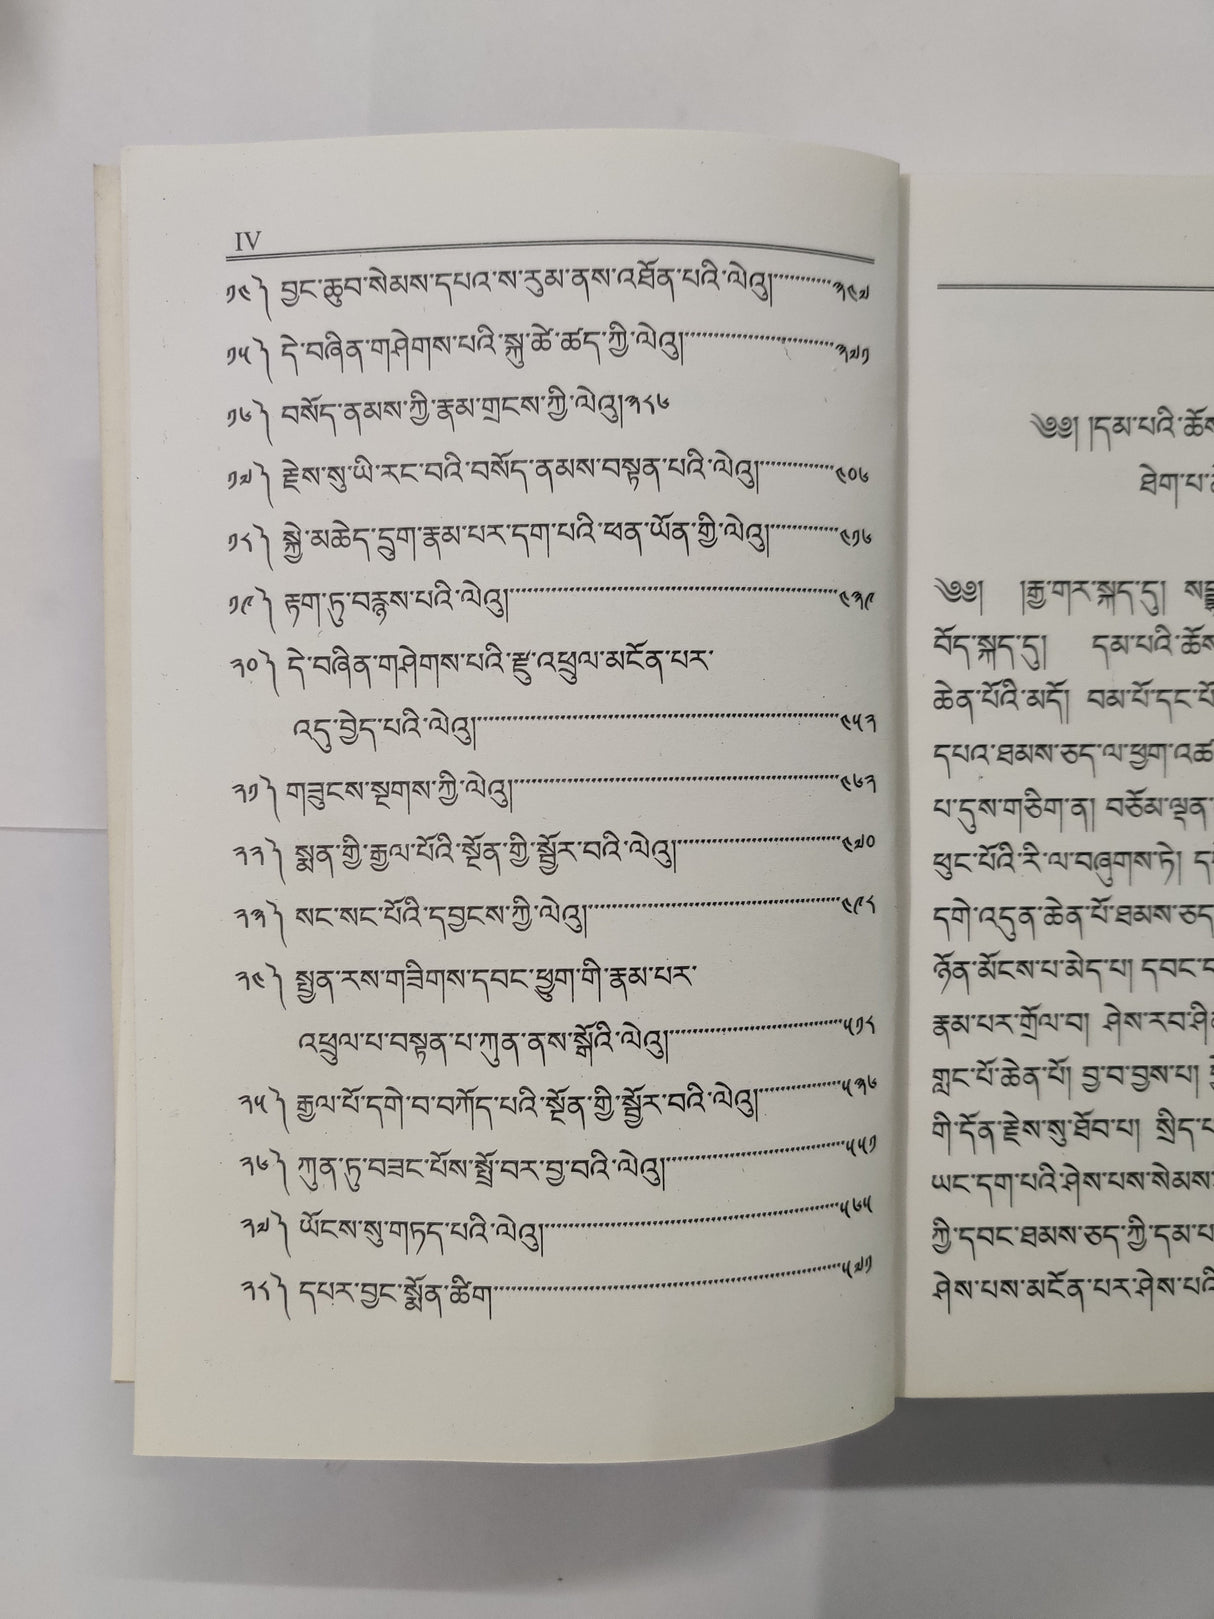 IV
༡༤༽ བྱང་ཆུབ་སེམས་དཔའ་ས་རུམ་ནས་འཐོན་པའི་ལེའུ།············༣༤༧
༡༥༽ དེ་བཞིན་གཤེགས་པའི་སྐུ་ཚེ་ཚད་ཀྱི་ལེའུ།························༣༧༡
༡༦༽ བསོད་ནམས་ཀྱི་རྣམ་གྲངས་ཀྱི་ལེའུ།༣༨༦
༡༧༽ རྗེས་སུ་ཡི་རང་བའི་བསོད་ནམས་བསྟན་པའི་ལེའུ།············༤༠༦
༡༨༽ སྐྱེ་མཆེད་དྲུག་རྣམ་པར་དག་པའི་ཕན་ཡོན་གྱི་ལེའུ།············༤༡༦
༡༩༽ རྟག་ཏུ་བརྙས་པའི་ལེའུ།················································༤༣༩
༢༠༽ དེ་བཞིན་གཤེགས་པའི་རྫུ་འཕྲུལ་མངོན་པར་
འདུ་བྱེད་པའི་ལེའུ།························································༤༥༢
༢༡༽ གཟུངས་སྔགས་ཀྱི་ལེའུ།················································༤༦༢
༢༢༽ སྨན་གྱི་རྒྱལ་པོའི་སྔོན་གྱི་སྦྱོར་བའི་ལེའུ།························༤༧༠
༢༣༽ སང་སང་པོའི་དབྱངས་ཀྱི་ལེའུ།····································༤༩༨
༢༤༽ སྤྱན་རས་གཟིགས་དབང་ཕྱུག་གི་རྣམ་པར་
འཕྲུལ་པ་བསྟན་པ་ཀུན་ནས་སྒོའི་ལེའུ།························༥༡༨
༢༥༽ རྒྱལ་པོ་དགེ་བ་བཀོད་པའི་སྔོན་གྱི་སྦྱོར་བའི་ལེའུ།············༥༣༦
༢༦༽ ཀུན་ཏུ་བཟང་པོས་སྤྲོ་བར་བྱ་བའི་ལེའུ།························༥༥༡
༢༧༽ ཡོངས་སུ་གཏད་པའི་ལེའུ།············································༥༦༥
༢༨༽ དཔར་བྱང་སྨོན་ཚིག····················································༥༧༡
༄༅། །དམ་པའི་
ཐེག་པ་
༄༅། །རྒྱ་གར་སྐད་དུ།
བོད་སྐད་དུ། དམ་པའི་
ཆེན་པོའི་མདོ། བམ་པོ་དང་
དཔའ་ཐམས་ཅད་ལ་ཕྱག་
པ་དུས་གཅིག་ན། བཅོམ་ལྡན་
ཕུང་པོའི་རི་ལ་བཞུགས་ཏེ།
དགེ་འདུན་ཆེན་པོ་ཐམས་ཅད་
ཉོན་མོངས་པ་མེད་པ། དབང་
རྣམ་པར་གྲོལ་བ། ཤེས་རབ་
གླང་པོ་ཆེན་པོ། བྱ་བ་བྱས་པ།
གི་དོན་རྗེས་སུ་ཐོབ་པ། སྲིད་
ཡང་དག་པའི་ཤེས་པས་སེམས་
ཀྱི་དབང་ཐམས་ཅད་ཀྱི་དམ་པ
ཤེས་པས་མངོན་པར་ཤེས་